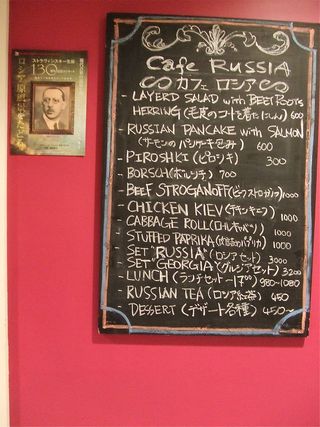 ストラヴィンスキー生誕
130
Cafe RUSSIA
カフェ ロシア
- LAYERD SALAD with BEETROOTS
HERRING (毛皮のコートを着たにしん) 600
- RUSSIAN PANCAKE with SALMON
(サーモンのパンケーキ包み) 600
- PIROSHKI (ピロシキ) 300
- BORSCH (ボルシチ) 700
- BEEF STROGANOFF (ビーフストロガノフ) 1000
- CHICKEN KIEV (チキンキエフ) 1000
- CABBAGE ROLL (ロールキャベツ) 1000
- STUFFED PAPRIKA (パプリカ) 1000
- SET "RUSSIA" (ロシアセット) 3000
SET "GEORGIA" (グルジアセット) 3200
- LUNCH (ランチセット ~17:00) 980~1080
- RUSSIAN TEA (ロシア紅茶) 450
- DESSERT (デザート各種) 450~